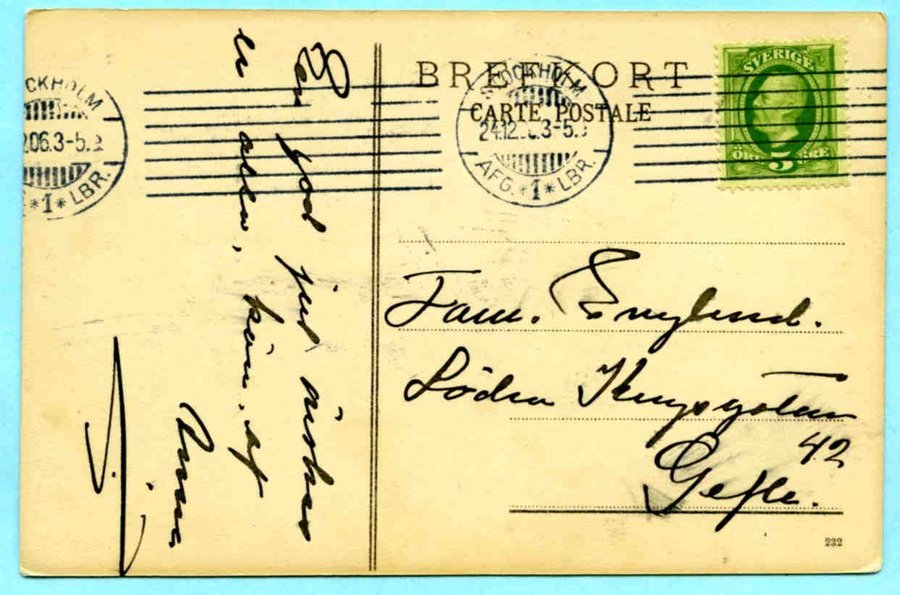 BREFKORT
CARTE POSTALE
STOCKHOLM
24.12.06.3-5
AFG. *1* LBR.
SVERIGE
5
CKHOLM
.06.3-5
*1* LBR.
Fam. Englund.
Södra Kungsgatan
42
Gefle.
232
En god jul önskas
er alla, från af